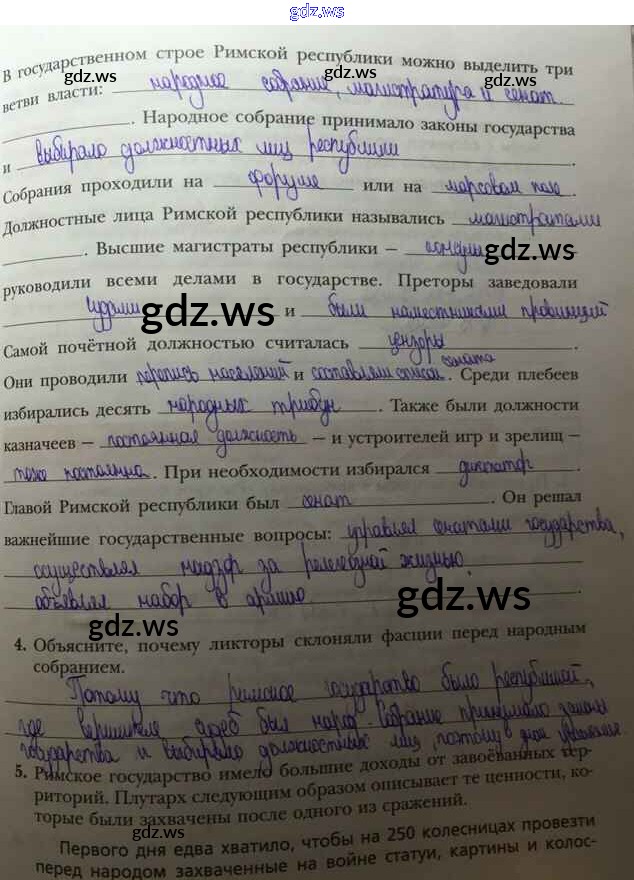 gdz.ws
В государственном строе Римской республики можно выделить три
ветви власти: народное собрание, магистратура и сенат.
. Народное собрание принимало законы государства
и выбирало должностных лиц республики.
Собрания проходили на форуме или на марсовом поле.
Должностные лица Римской республики назывались магистратами
. Высшие магистраты республики –
руководили всеми делами в государстве. Преторы заведовали
судами и были наместниками провинций
Самой почётной должностью считалась цензоры.
Они проводили перепись населений и составляли список сената. Среди плебеев
избирались десять народных трибун. Также были должности
казначеев – постоянная должность – и устроителей игр и зрелищ –
тоже постоянна. При необходимости избирался диктатор.
Главой Римской республики был сенат. Он решал
важнейшие государственные вопросы: управлял государства,
осуществлял надзор за жизнью,
объявлял набор в армию.
4. Объясните, почему ликторы склоняли фасции перед народным
собранием.
Потому что римское государство было республикой,
где был народ. Собрание принимало законы
государства и выбирало должностных лиц, поэтому уважение.
5. Римское государство имело большие доходы от завоёванных тер-
риторий. Плутарх следующим образом описывает те ценности, ко-
торые были захвачены после одного из сражений.
Первого дня едва хватило, чтобы на 250 колесницах провезти
перед народом захваченные на войне статуи, картины и колос-
gdz.ws
gdz.ws
gdz.ws
gdz.ws
gdz.ws
gdz.ws
gdz.ws
gdz.ws